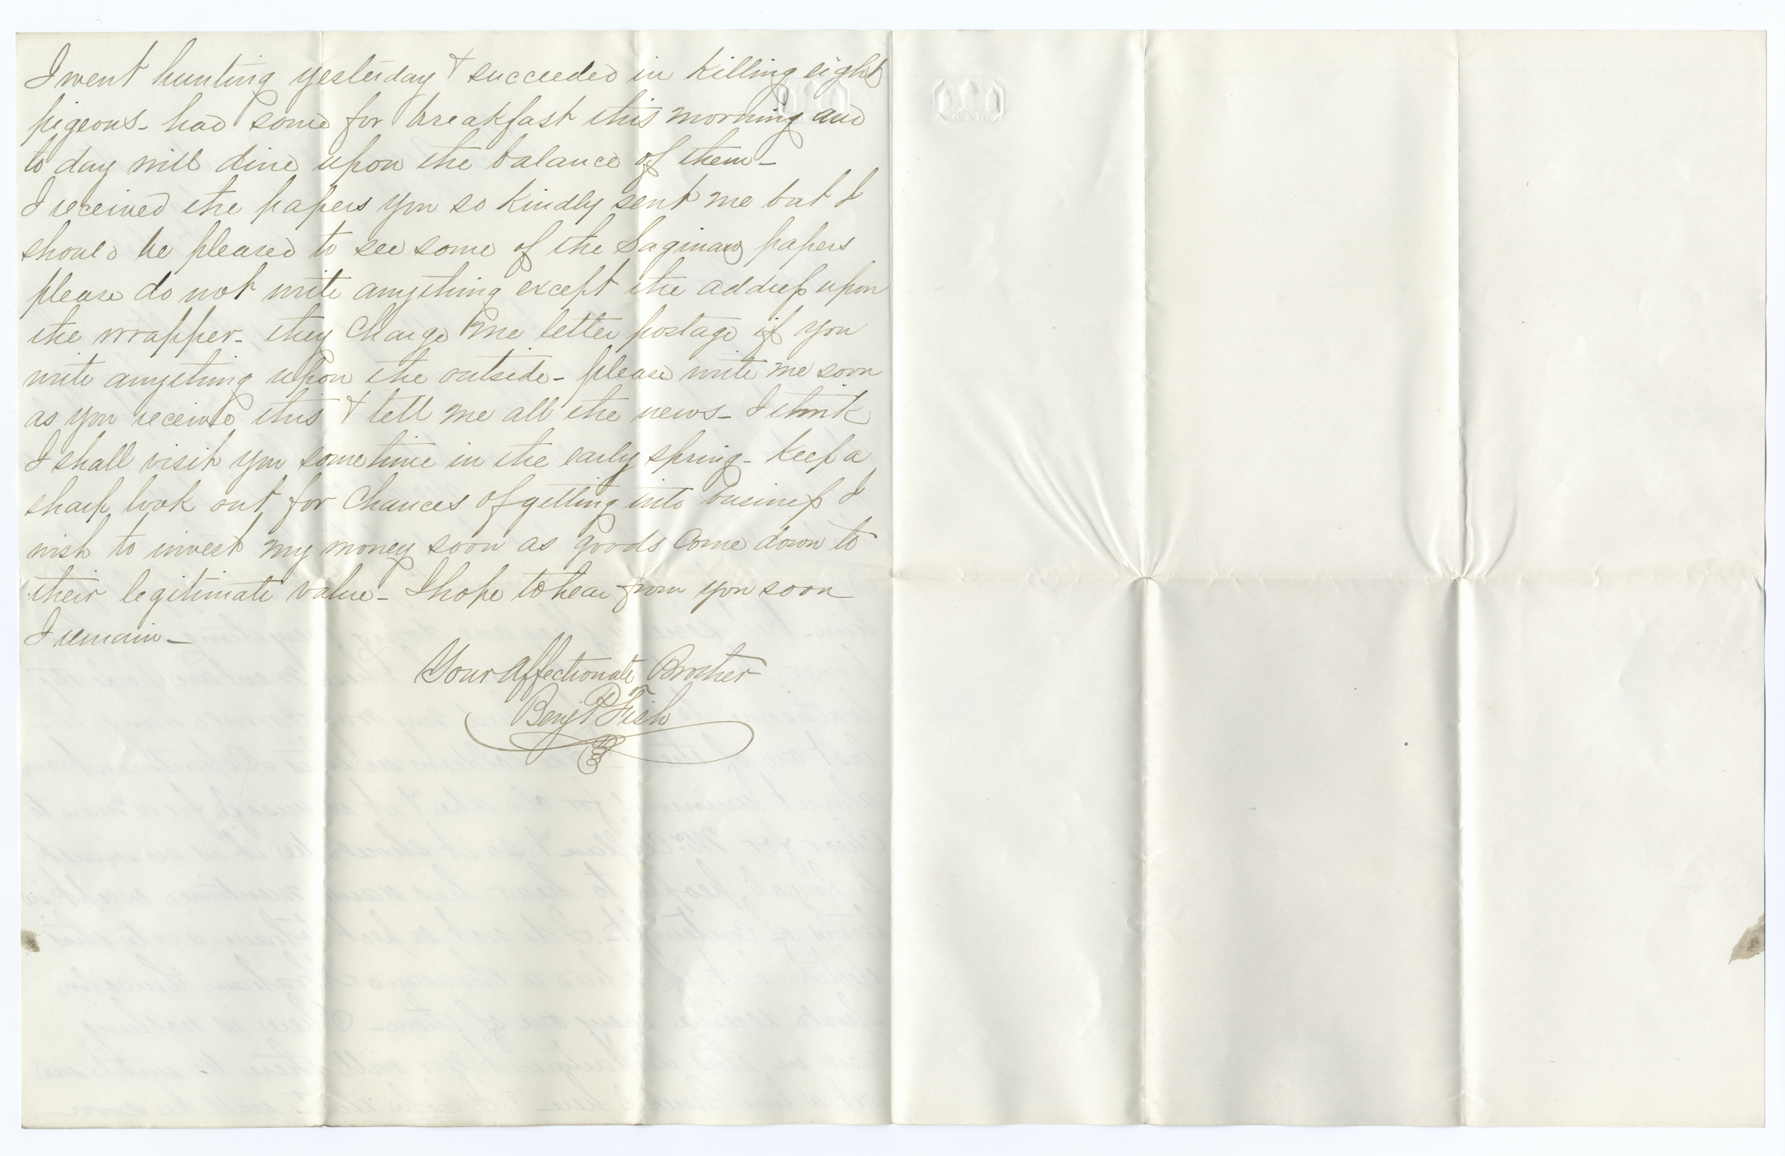 I went hunting yesterday & succeeded in killing eight
pigeons - had some for breakfast this morning and
to day will dine upon the balance of them -
I received the papers you so kindly sent me but I
should be pleased to see some of the Saginaw papers
please do not write anything except the address upon
the wrapper - they Charge me letter postage if you
write anything upon the outside - please write me soon
as you receive this & tell me all the news - I think
I shall visit you sometime in the early spring - Keep a
sharp look out for Chances of getting into business I
wish to invest my money soon as goods Come down to
their legitimate value - I hope to hear from you soon
I remain -
Your Affectionate Brother
Benj P Fish